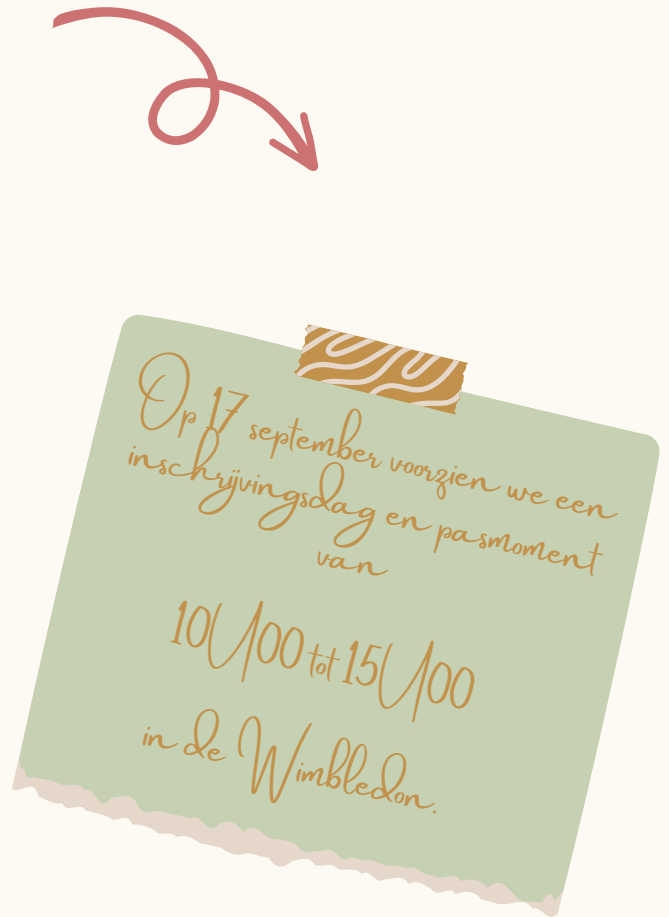 Op 17 september voorzien we een
inschrijvingsdag en pasmoment
van
10U00 tot 15U00
in de Wimbledon.